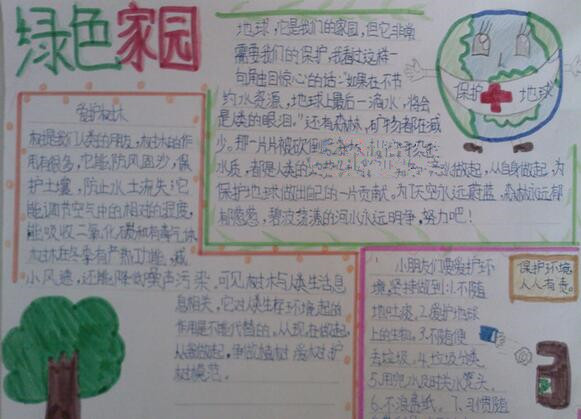 绿色家园
地球,它是我们的家园,但它非常
需要我们的保护,我看过这样一
句触目惊心的话:"如果在不节
约水资源,地球上最后一滴水,将会
是人类的眼泪。"还有森林,矿物都在减
少。那一片片被砍倒
水质,都是人类的 做起,从自身做起,为
保护地球做出自己的一片贡献。为了天空永远蔚蓝,森林永远郁
郁葱葱,碧波荡漾的河水永远明净,努力吧!
保护 地球
爱护树木
树是我们人类的朋友,树木的作
用有很多,它能防风固沙,保
护土壤,防止水土流失;它
能调节空气中的相对的湿度,
能吸收二氧化碳和有毒气体,
树木在冬季有产热功能,减
小风速,还能降低噪声污染,可见树木与人类生活息
息相关,它对人类生存环境起的
作用是不能代替的。从现在做起,
从我做起,争做植树 爱树 护
树模范。
小朋友们要爱护环
境,坚持做到:1.不随
地吐痰。2.爱护地球
上的生物。3.不随便
丢垃圾。4.垃圾分类。
5.用完水及时关水笼头。
6.不浪费纸。7.
保护环境,
人人有责。